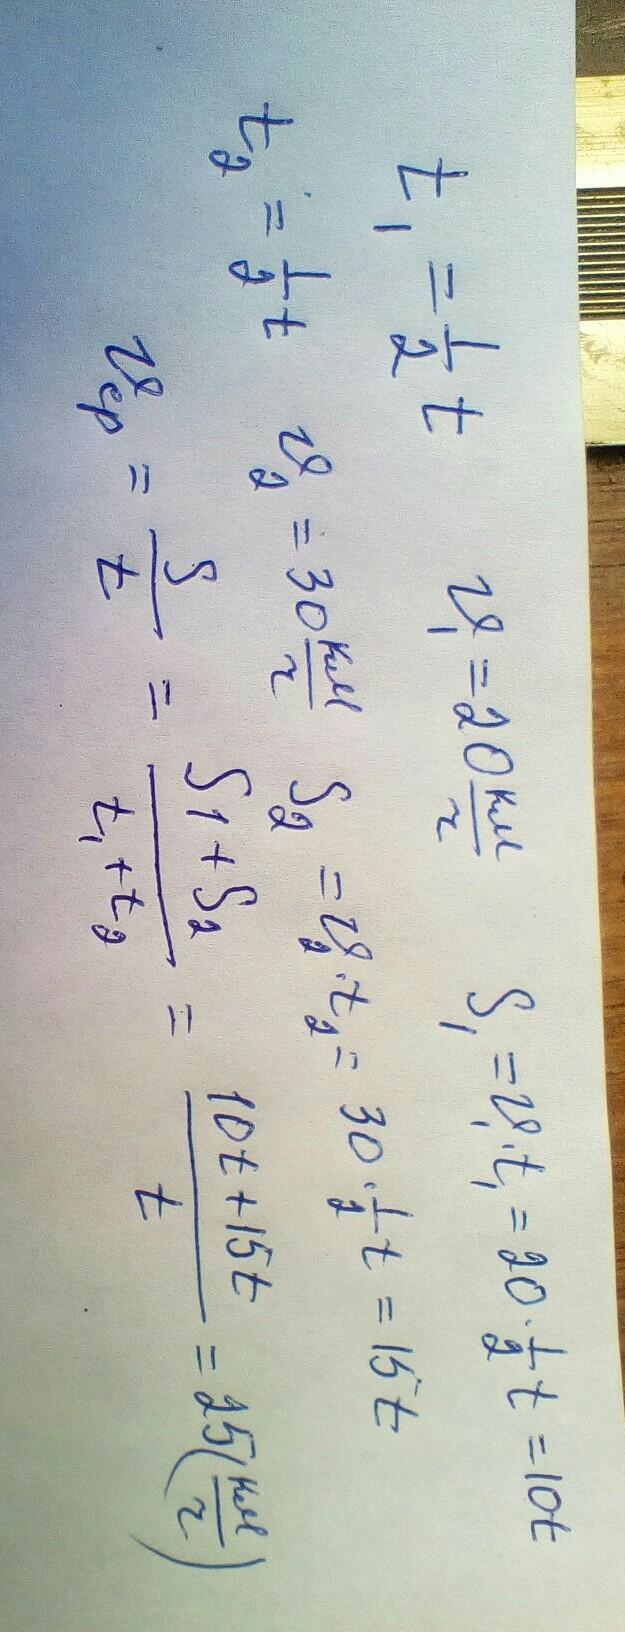 t₁ = 1/2 t   υ₁ = 20 км/ч   S₁ = υ₁·t₁ = 20·1/2 t = 10t
t₂ = 1/2 t   υ₂ = 30 км/ч   S₂ = υ₂·t₂ = 30·1/2 t = 15t
υср = S/t = (S1+S₂)/(t₁+t₂) = (10t+15t)/t = 25(км/ч)